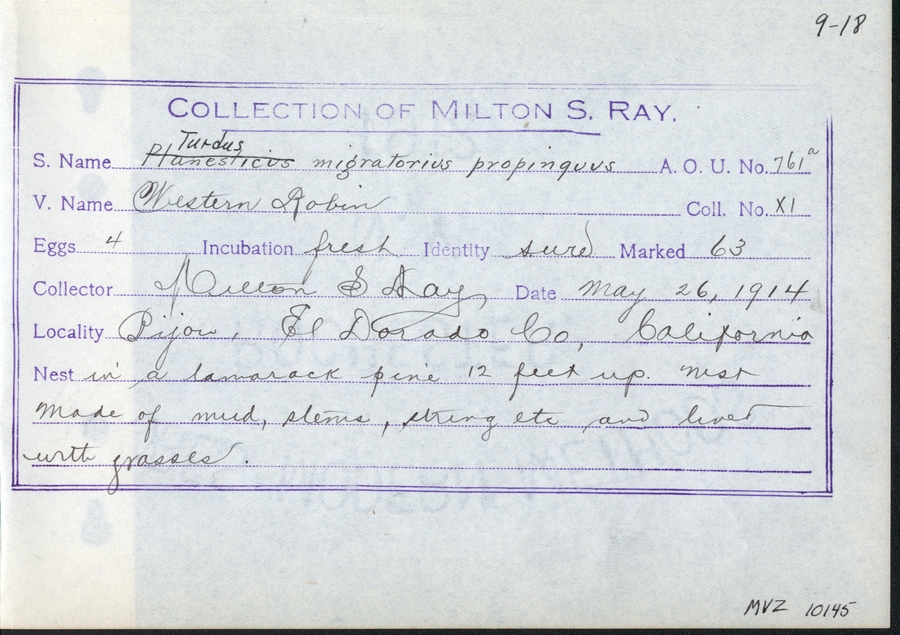 9-18
COLLECTION OF MILTON S. RAY.
Turdus
S. Name Planesticus migratorius propinquus A. O. U. No. 761a
V. Name Western Robin Coll. No. XI
Eggs 4 Incubation fresh Identity sure Marked 63
Collector Milton S Ray Date May 26, 1914
Locality Bijou, El Dorado Co, California
Nest in a tamarack pine 12 feet up. Nest
made of mud, stems, string etc and lined
with grasses.
MVZ 10145